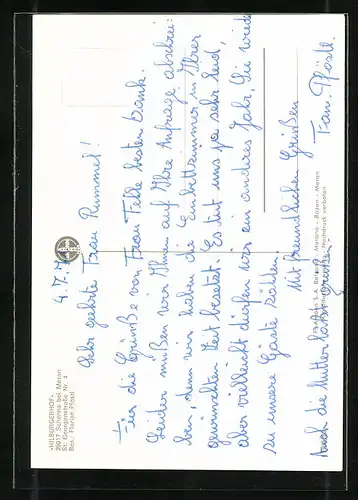 4.7.7
Sehr geehrte Frau Rummel!
Für die Grüße von Frau Tille besten Dank.
Leider müßen wir Ihnen auf Ihre Anfrage abschrei-
ben, denn wir haben die Einbettzimmer in Ihrer
gewünschten Zeit besetzt. Es tut uns ja sehr leid,
aber vielleicht dürfen wir ein anderes Jahr Sie wieder
zu unsere Gäste zählen.
Mit freundlichen Grüßen
Frau Pföstl.
Auch die Mutter läßt grüßen
«HILBURGERHOF»
39017 Schenna bei Meran
St. Georgenstraße Nr. 4
Bes.: Florian Pföstl
Merano - Bozen - Meran
Nachdruck verboten